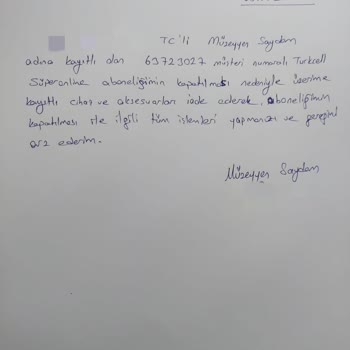 TC'li Müzeyyen Saydam
adına kayıtlı olan 63723027 müşteri numaralı Turkcell
Süperonline aboneliğimin kapatılması nedeniyle üzerime
kayıtlı cihaz ve aksesuarları iade ederek, aboneliğimin
kapatılması ile ilgili tüm işlemleri yapmanızı ve gereğini
arz ederim.
Müzeyyen Saydam